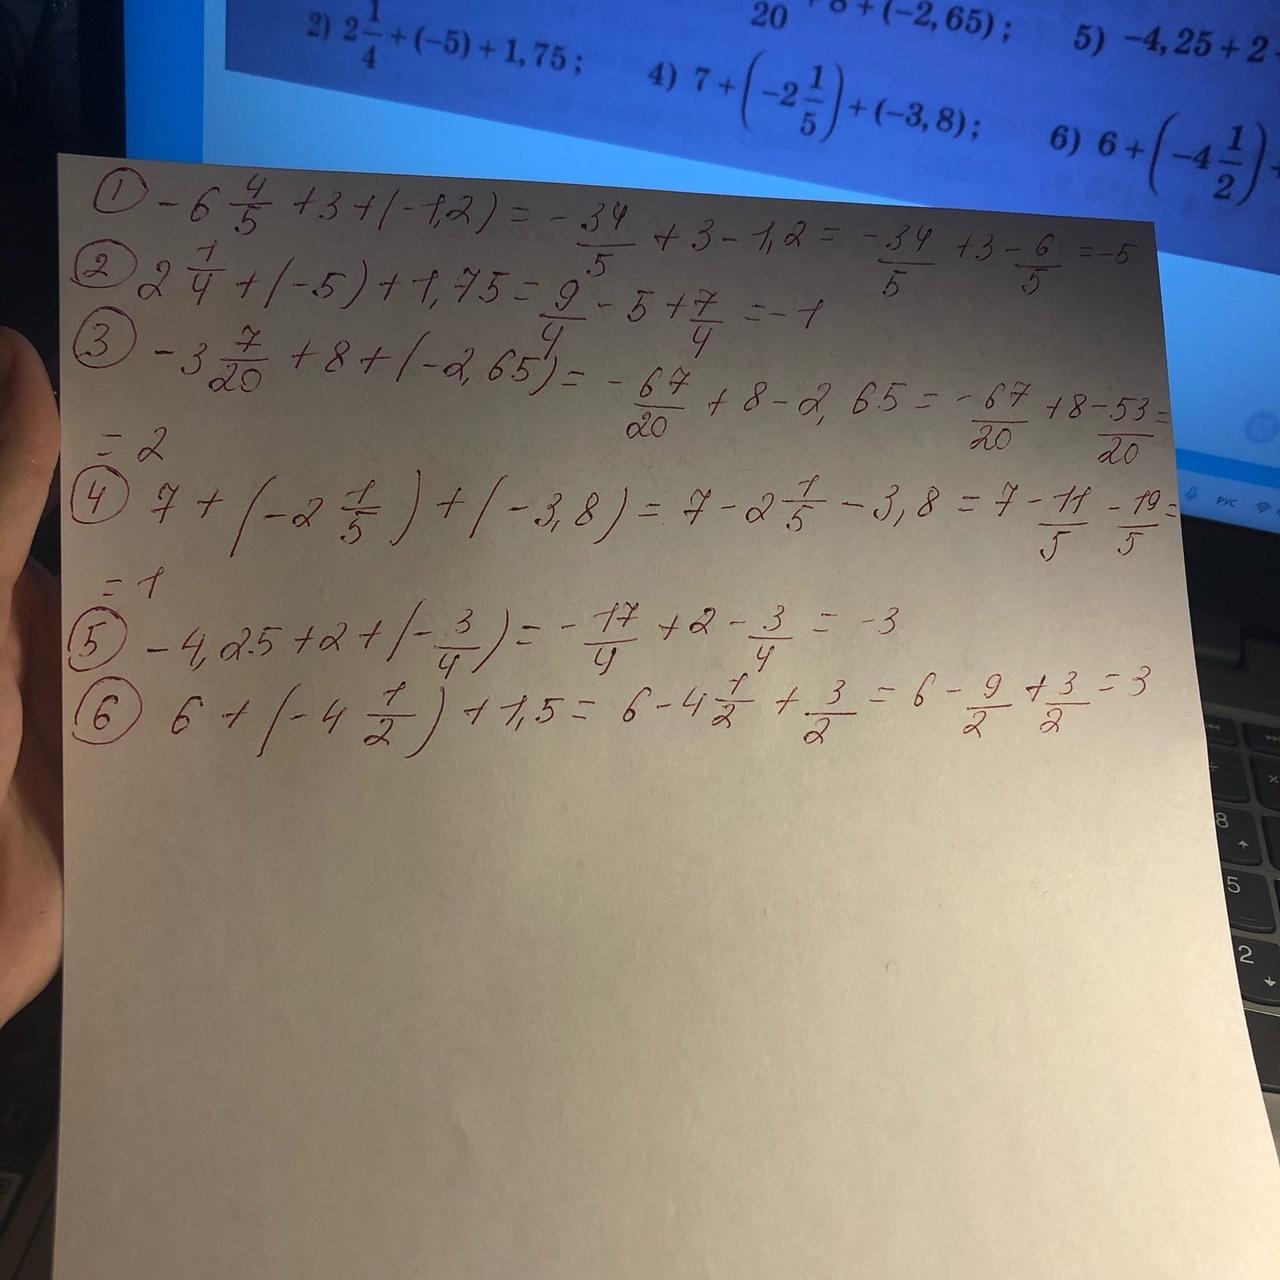 20 + 8 + (-2,65);
5) -4,25 + 2
2) 2 1/4 + (-5) + 1,75;
4) 7 + (-2 1/5) + (-3,8);
6) 6 + (-4 1/2) +
① -6 4/5 + 3 + (-1,2) = -34/5 + 3 - 1,2 = -34/5 + 3 - 6/5 = -5
② 2 1/4 + (-5) + 1,75 = 9/4 - 5 + 7/4 = -1
③ -3 7/20 + 8 + (-2,65) = -67/20 + 8 - 2,65 = -67/20 + 8 - 53/20 =
= 2
④ 7 + (-2 1/5) + (-3,8) = 7 - 2 1/5 - 3,8 = 7 - 11/5 - 19/5 =
= 1
⑤ -4,25 + 2 + (-3/4) = -17/4 + 2 - 3/4 = -3
⑥ 6 + (-4 1/2) + 1,5 = 6 - 4 1/2 + 3/2 = 6 - 9/2 + 3/2 = 3
РУС
8
5
2